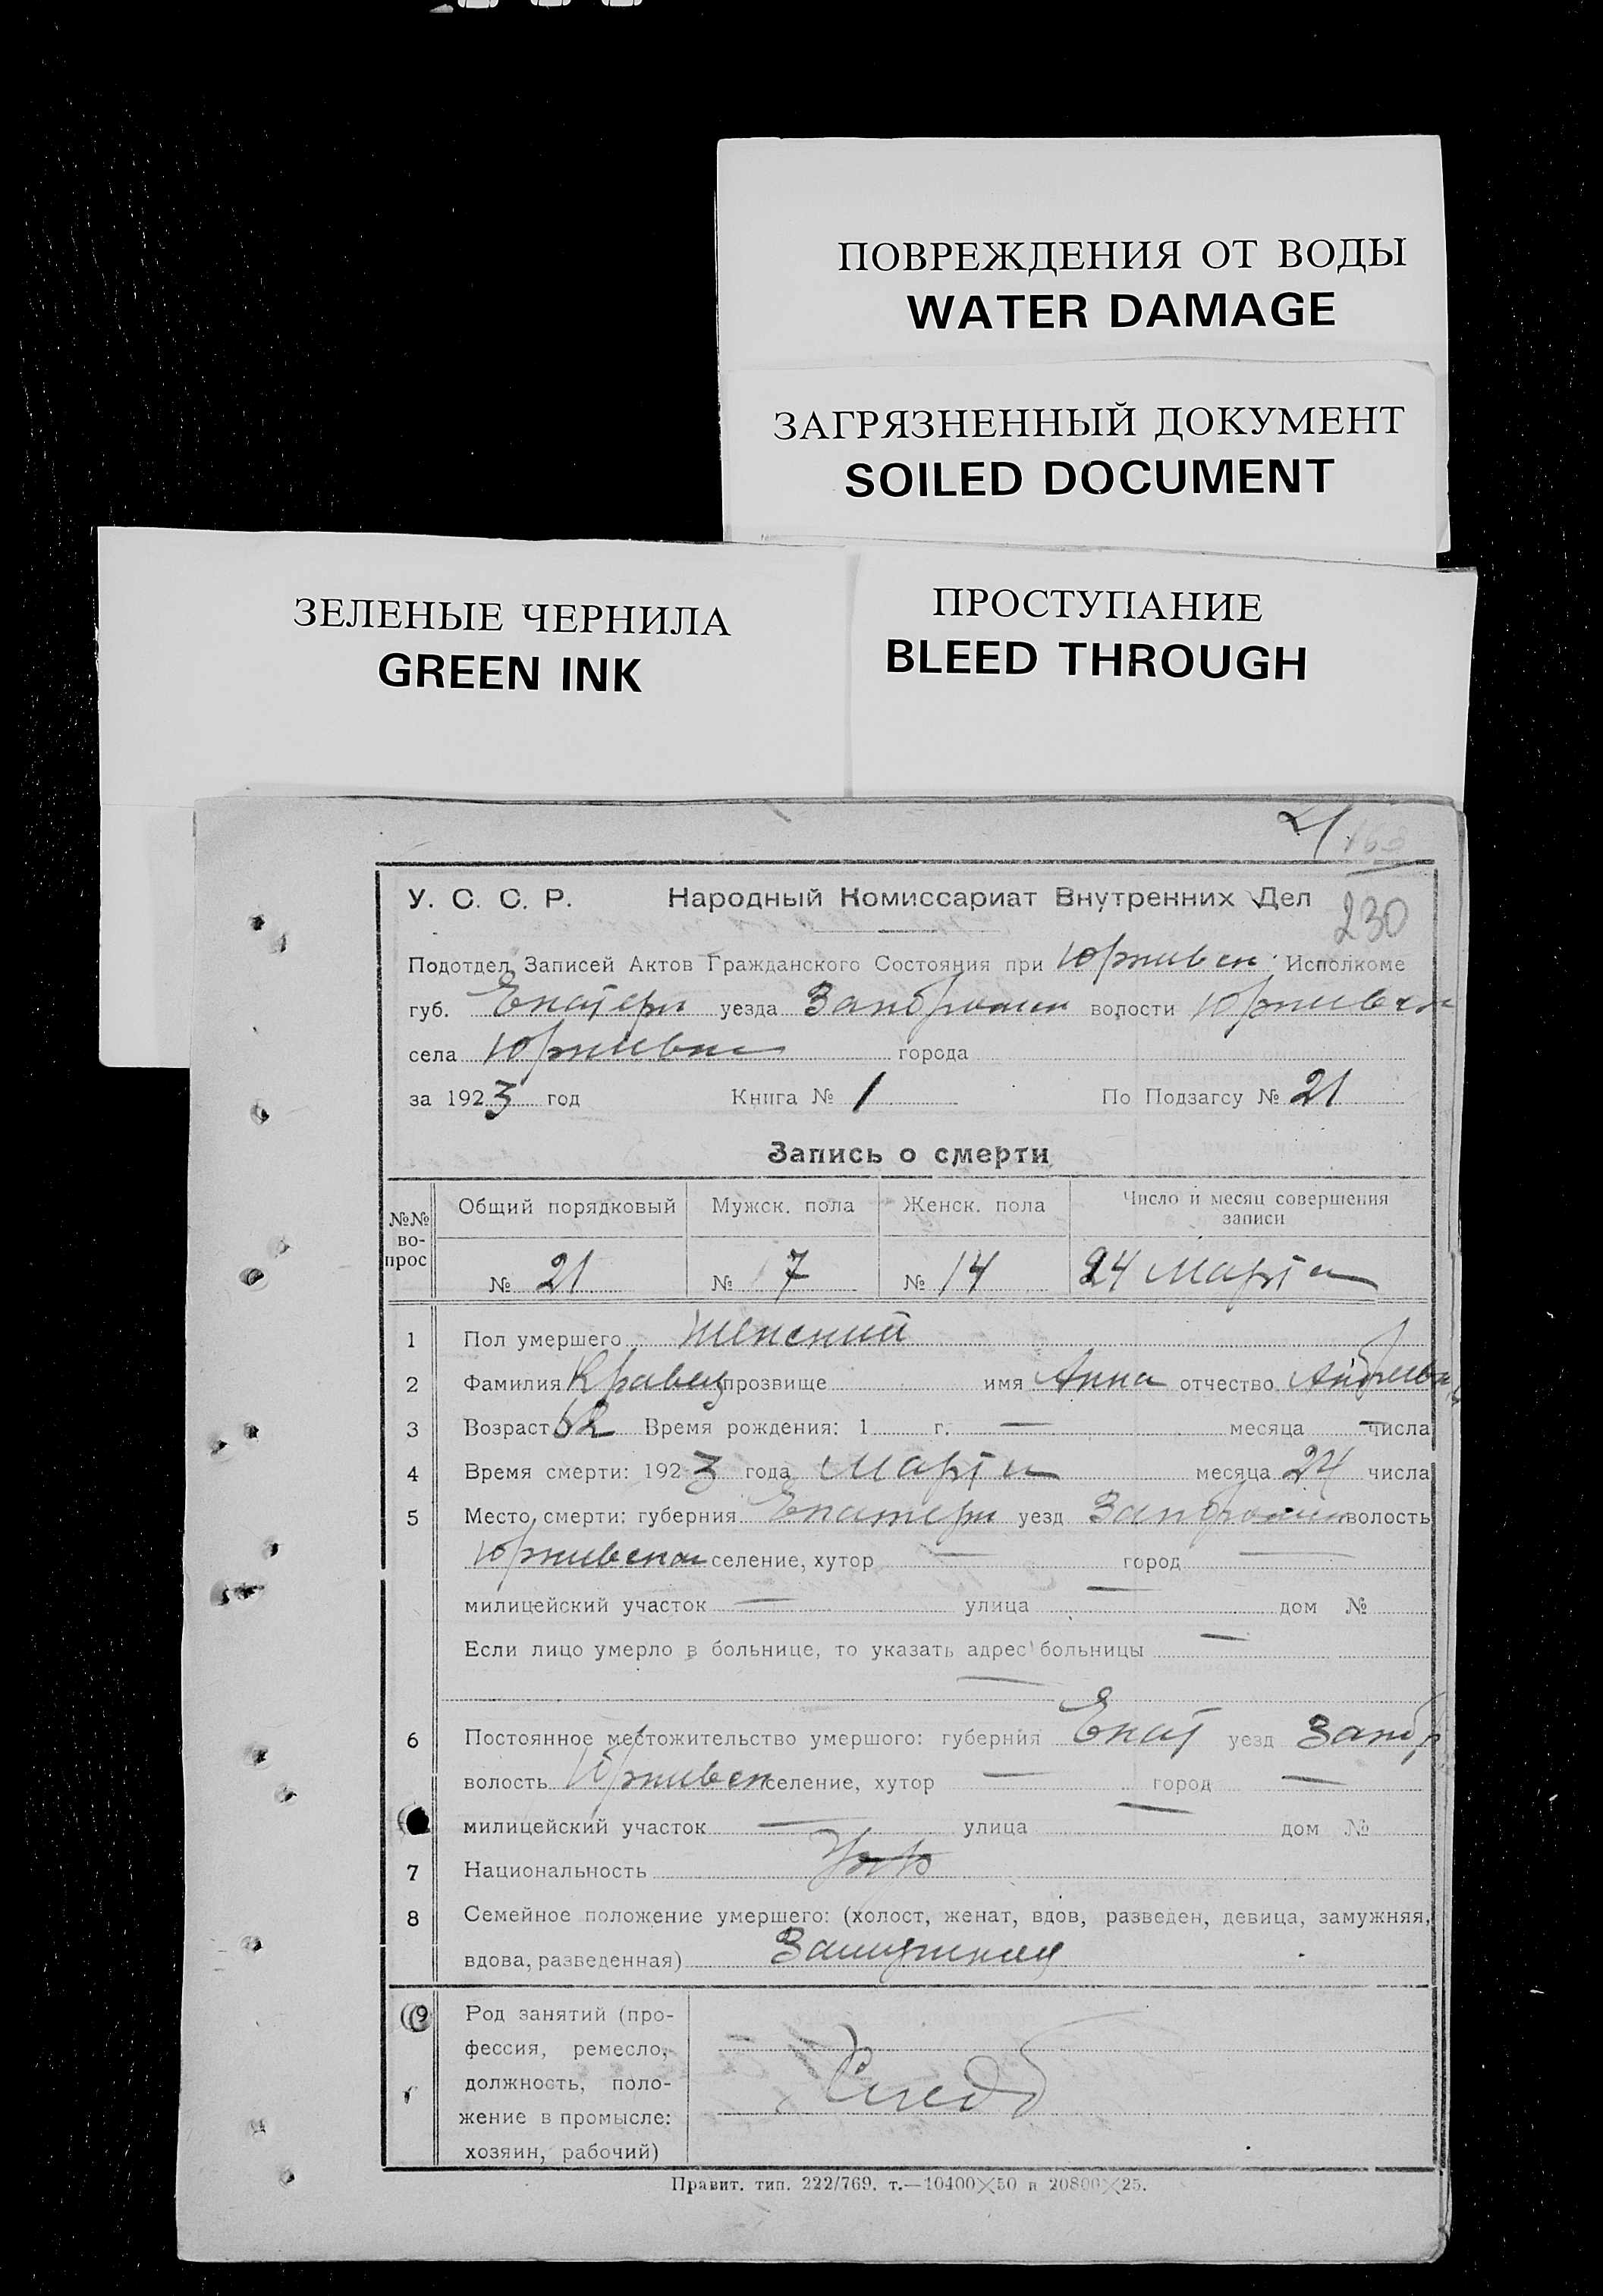 ПОВРЕЖДЕНИЯ ОТ ВОДЫ
WATER DAMAGE
ЗАГРЯЗНЕННЫЙ ДОКУМЕНТ
SOILED DOCUMENT
ЗЕЛЕНЫЕ ЧЕРНИЛА
GREEN INK
ПРОСТУПАНИЕ
BLEED THROUGH
21
230
У. С. С. Р. Народный Комиссариат Внутренних Дел
Подотдел Записей Актов Гражданского Состояния при Исполкоме
губ. Екатери уезда волости
села города
за 1923 год Книга № 1 По Подзагсу № 21
Запись о смерти
№№ во-прос Общий порядковый Мужск. пола Женск. пола Число и месяц совершения записи
№ 21 № 7 № 14 24 Марта
1 Пол умершего Женский
2 Фамилия Кравец прозвище имя Анна отчество
3 Возраст 62 Время рождения: 1 г. — месяца — числа
4 Время смерти: 1923 года Марта месяца 24 числа
5 Место смерти: губерния Екатери уезд волость
селение, хутор — город —
милицейский участок — улица — дом №
Если лицо умерло в больнице, то указать адрес больницы —
—
6 Постоянное местожительство умершого: губерния Екат уезд Запор
волость селение, хутор — город —
милицейский участок — улица — дом №
7 Национальность
8 Семейное положение умершего: (холост, женат, вдов, разведен, девица, замужняя,
вдова, разведенная) Замужняя
9 Род занятий (про-
фессия, ремесло,
должность, поло-
жение в промысле:
хозяин, рабочий)
Правит. тип. 222/769. т.—10400×50 и 20800×25.